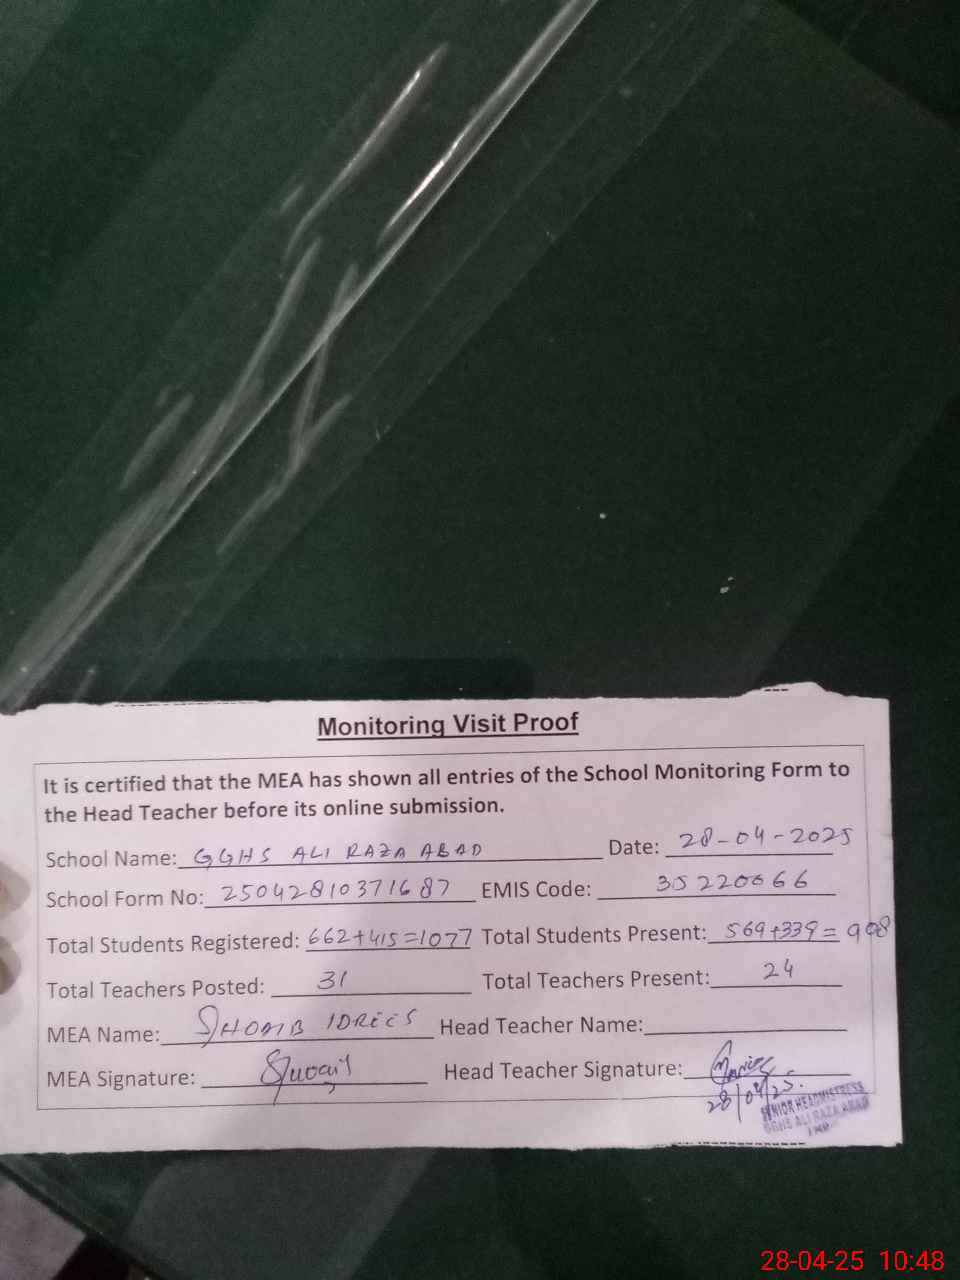 Monitoring Visit Proof
It is certified that the MEA has shown all entries of the School Monitoring Form to
the Head Teacher before its online submission.
School Name: GGHS ALI RAZA ABAD Date: 28-04-2025
School Form No: 25042810371687 EMIS Code: 35220066
Total Students Registered: 662+415=1077 Total Students Present: 569+339=908
Total Teachers Posted: 31 Total Teachers Present: 24
MEA Name: SHOAIB IDREES Head Teacher Name:
MEA Signature: Shoaib Head Teacher Signature:
28/04/25.
SENIOR HEADMISTRESS
GGHS ALI RAZA ABAD
28-04-25 10:48